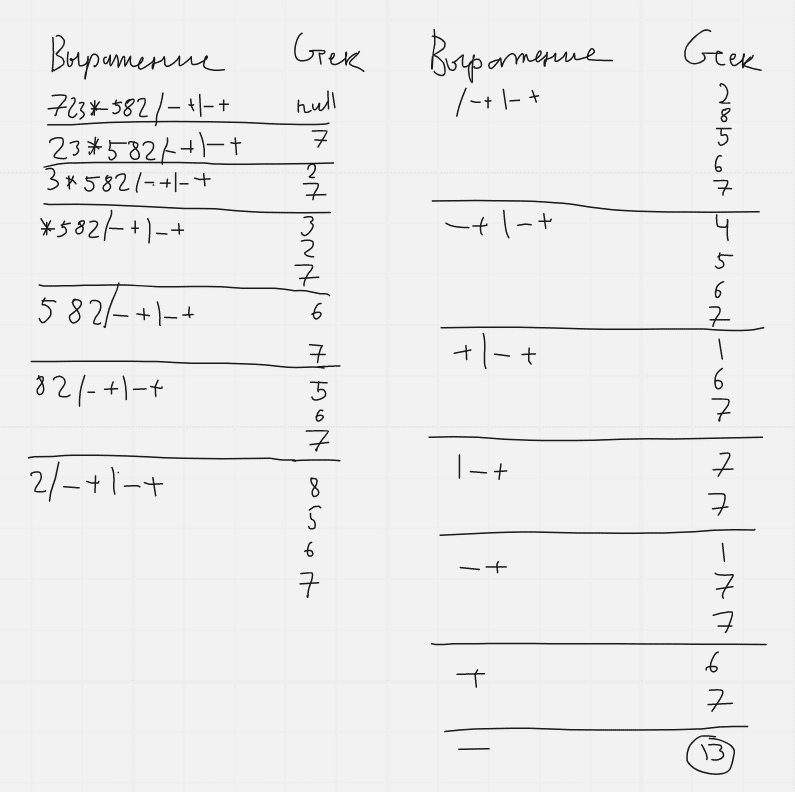 Выражение Стек
723*582/-+1-+ null
23*582/-+1-+ 7
3*582/-+1-+ 2
7
*582/-+1-+ 3
2
7
582/-+1-+ 6
7
82/-+1-+ 5
6
7
2/-+1-+ 8
5
6
7
Выражение Стек
/-+1-+ 2
8
5
6
7
-+1-+ 4
5
6
7
+1-+ 1
6
7
1-+ 7
7
-+ 1
7
7
+ 6
7
— 13